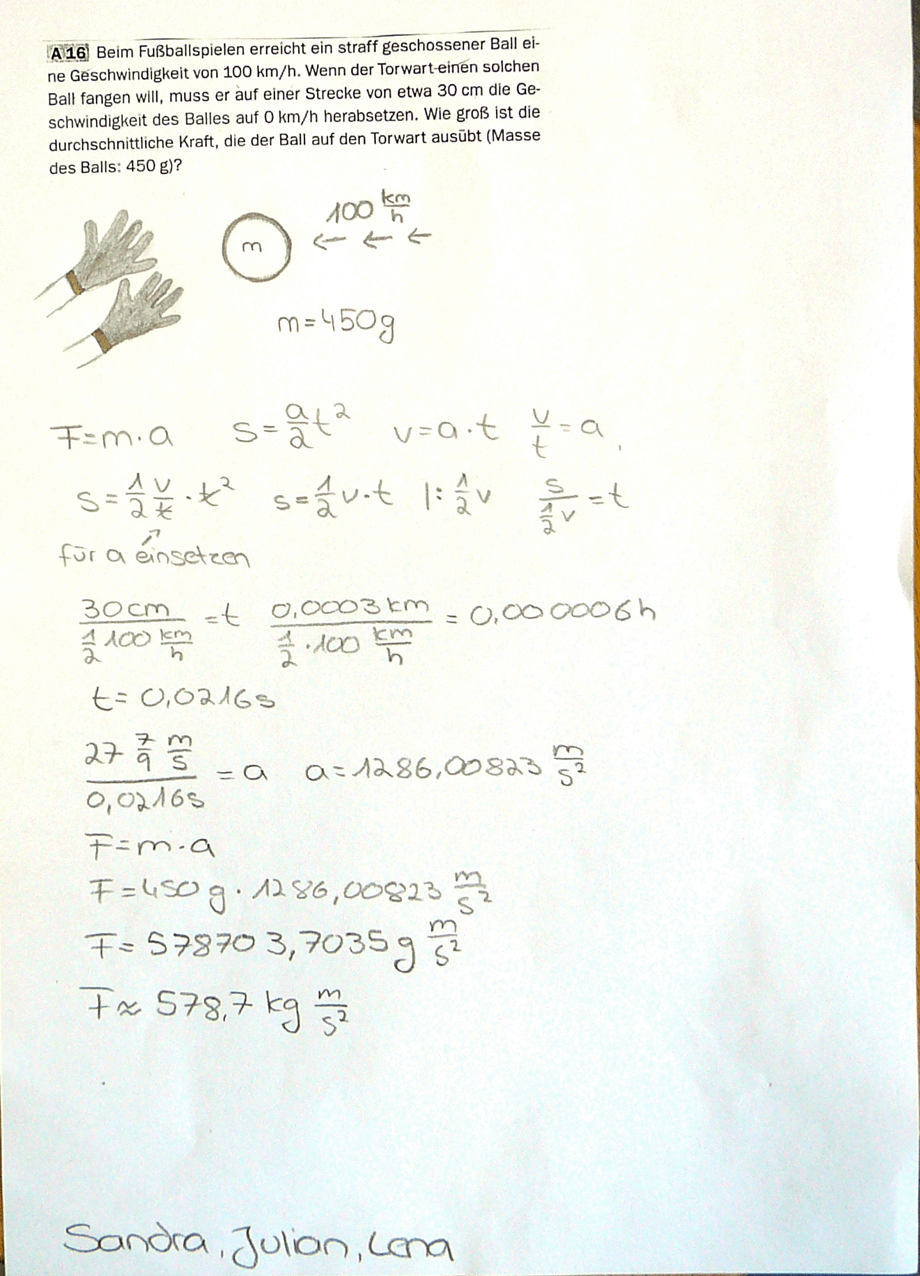 A 16 Beim Fußballspielen erreicht ein straff geschossener Ball ei-
ne Geschwindigkeit von 100 km/h. Wenn der Torwart einen solchen
Ball fangen will, muss er auf einer Strecke von etwa 30 cm die Ge-
schwindigkeit des Balles auf 0 km/h herabsetzen. Wie groß ist die
durchschnittliche Kraft, die der Ball auf den Torwart ausübt (Masse
des Balls: 450 g)?
100 km/h
m ← ← ←
m=450g
F=m·a s=a/2 t² v=a·t v/t=a
s=1/2 v/t·t² s=1/2 v·t |:1/2 v s/(1/2 v)=t
für a einsetzen
30cm/(1/2 100 km/h)=t 0,0003km/(1/2·100 km/h)=0,000006h
t=0,0216s
27 7/9 m/s / 0,0216s = a a=1286,00823 m/s²
F=m·a
F=450g·1286,00823 m/s²
F=578703,7035g m/s²
F≈578,7 kg m/s²
Sandra, Julian, Lena